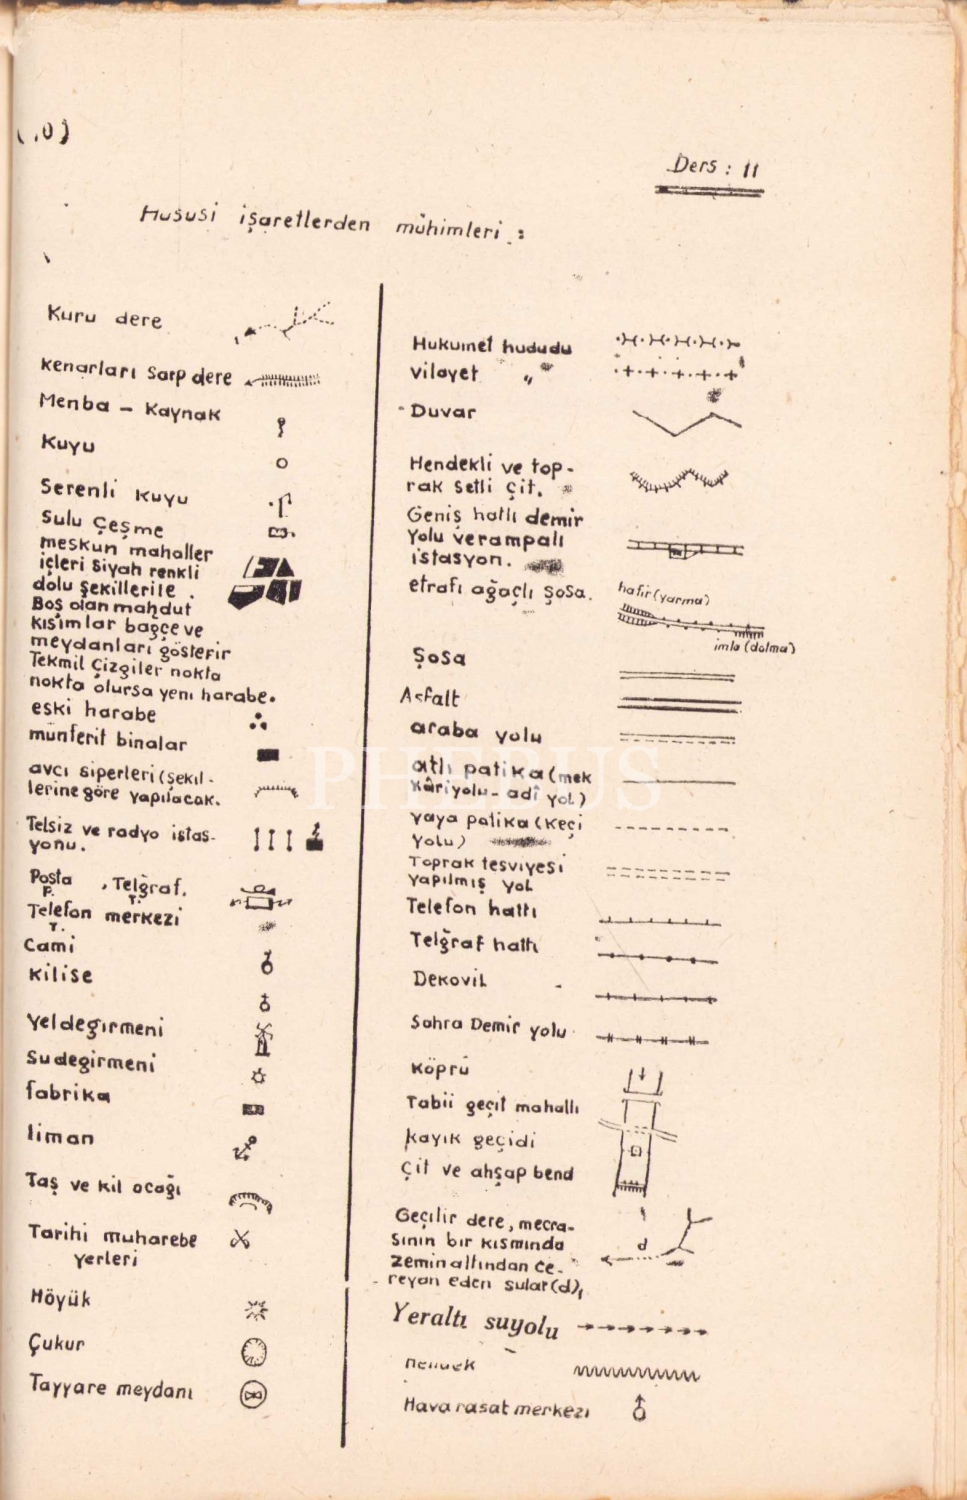 Ders : 11
Hususi işaretlerden mühimleri :
Kuru dere
Kenarları Sarp dere
Menba - Kaynak
Kuyu
Serenli Kuyu
Sulu Çeşme
meskun mahaller
içleri Siyah renkli
dolu şekillerile .
Boş olan mahdut
kısımlar bağçe ve
meydanları gösterir
Tekmil Çizgiler nokta
nokta olursa yeni harabe.
eski harabe
münferit binalar
avcı siperleri (Şekil-
lerine göre yapılacak.
Telsiz ve radyo istas-
yonu.
Posta , Telğraf.
P. T.
Telefon merkezi
T.
Cami
Kilise
Yeldegirmeni
Sudegirmeni
fabrika
liman
Taş ve kil ocağı
Tarihi muharebe
yerleri
Höyük
Çukur
Tayyare meydanı
Hukumet hududu
vilayet "
Duvar
Hendekli ve top-
rak Setli Çit.
Geniş hatlı demir
Yolu ve rampalı
istasyon.
etrafı ağaçlı Şosa.
hafir (yarma)
imla (dolma)
Şosa
Asfalt
araba yolu
atlı patika (mek
kâri yolu - adî yol)
yaya patika (Keçi
Yolu)
Toprak tesviyesi
yapılmış yol
Telefon hattı
Telğraf hattı
Dekovil
Sahra Demir yolu
Köprü
Tabii geçit mahallı
kayık geçidi
Çit ve ahşap bend
Geçilir dere, mecra-
sının bir kısmında
d
zemin altından ce-
reyan eden sular (d),
Yeraltı suyolu
Hava rasat merkezi
PHEBUS